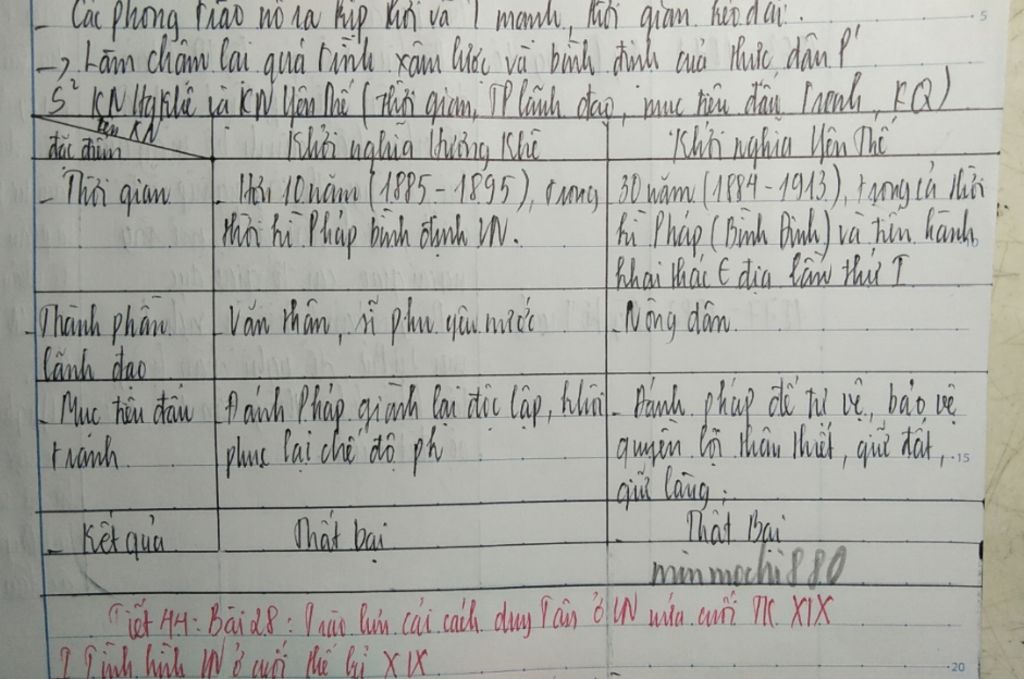 - Các phong trào nổ ra kịp thời và mạnh, thời gian kéo dài.
-> Làm chậm lại quá trình xâm lược và bình định của thực dân P'
S² KN Hg Khê và KN Yên Thế (Thời gian, TP lãnh đạo, mục tiêu đấu tranh, KQ)
tên KN
đặc điểm
Khởi nghĩa Hương Khê
Khởi nghĩa Yên Thế
- Thời gian
- Hơn 10 năm (1885-1895), trong
thời kì Pháp bình định VN.
30 năm (1884-1913), trong cả thời
kì Pháp (Bình Định) và tiến hành
khai thác € địa lần thứ I
- Thành phần
lãnh đạo
- Văn thân, sĩ phu yêu nước
- Nông dân.
- Mục tiêu đấu
tranh
- Đánh Pháp giành lại độc lập, khôi
phục lại chế độ pk
- Đánh pháp để tự vệ, bảo vệ
quyền lợi thân thiết, giữ đất,
giữ làng;
- Kết quả
Thất bại
Thất Bại
minmochi880
Tiết 44: Bài 28: Trào lưu cải cách duy Tân ở VN nửa cuối TK XIX
I Tình hình VN ở cuối thế kỉ XIX
5
15
20